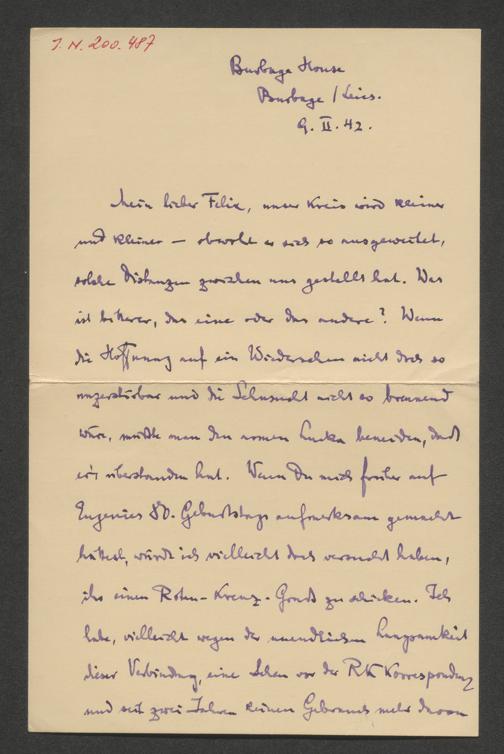 I. N. 200.487
Burbage House
Burbage / Leics.
9. II. 42.
Mein lieber Felix, unser Kreis wird kleiner
und kleiner – obwohl er sich so ausgeweitet,
solche Distanzen zwischen uns gestellt hat. Was
ist bitterer, das eine oder das andere? Wenn
die Hoffnung auf ein Wiedersehen nicht doch so
unzerstörbar und die Sehnsucht nicht so brennend
wäre, müßte man den armen Lucka beneiden, daß
er's überstanden hat. Wenn Du mich früher auf
Eugenies 80. Geburtstag aufmerksam gemacht
hättest, würde ich vielleicht doch versucht haben,
ihr einen Roten-Kreuz-Gruß zu schicken. Ich
habe, vielleicht wegen der unendlichen Langsamkeit
dieser Verbindung, eine Scheu vor der RK Korrespondenz
und seit zwei Jahren keinen Gebrauch mehr davon